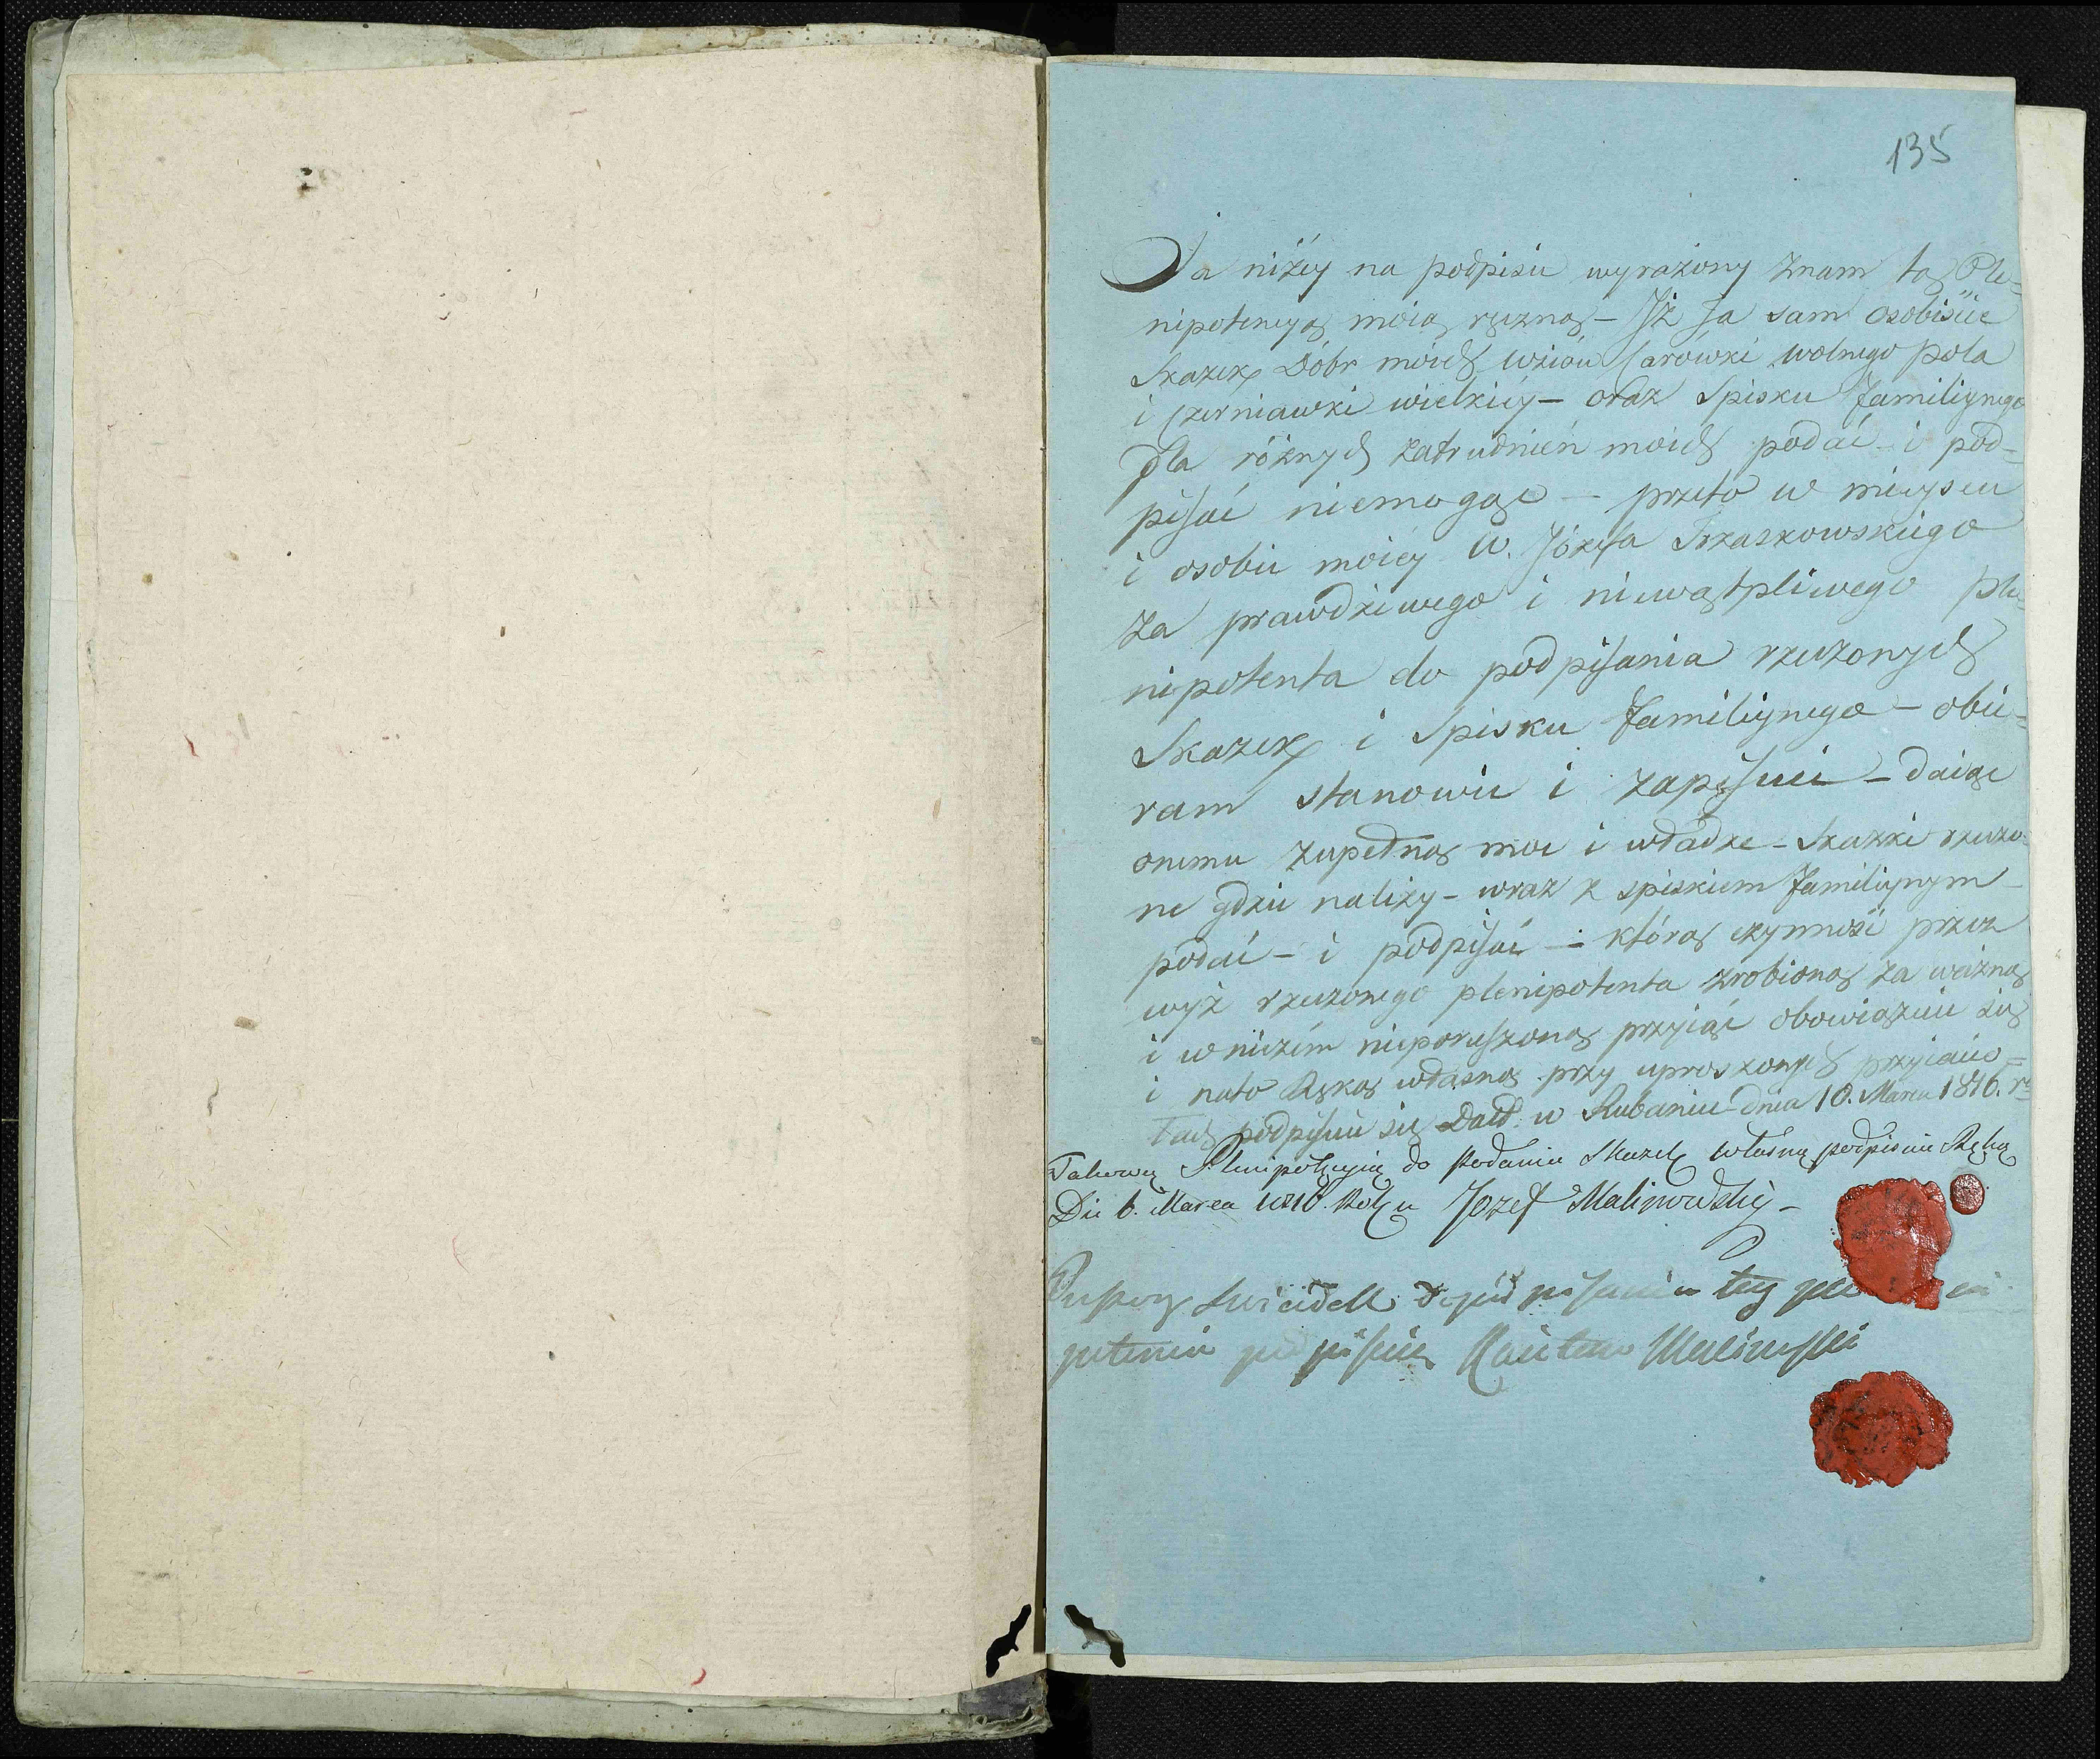 135
Ja niżey na podpisu wyrażony znam tą Ple=
nipotencyą moią ręczną – Jż Ja sam osobiście
Skazek Dobr moich wsiow Carowki wolnego pola
i Czerniawki wielkiey – oraz Spisku familiynego
dla różnych zatrudnień moich podać – i pod=
pisać niemogąc – przeto w mieyscu
i osobie moiey W. Józefa Trzaskowskiego
za prawdziwego i niewątpliwego ple=
nipotenta do podpisania rzeczonych
Skazek i Spisku familiynego – obie=
ram stanowie i zapisuie – daiąc
onemu zupełną moc i władze – Skazki rzeczo=
ne gdzie należy – wraz z spiskiem familiynym
podać – i podpisać – którą czynność przez
wyż rzeczonego plenipotenta zrobioną za ważną
i w niczém nieporuszoną przyiąć obowiązuie się
i nato Ręką własną przy uproszonych przyiacio=
łach podpisuie się Datt. w Rubaniu dnia 10. Marca 1816. r
Takową Plenipotencyią do Podania Skazek własną podpisuie Ręką
Die 6. Marca 1816. Roku Jozef Malinowskiy –
swiadek do pod pisania tey
potencii podpisuie Kaietan Malinowski